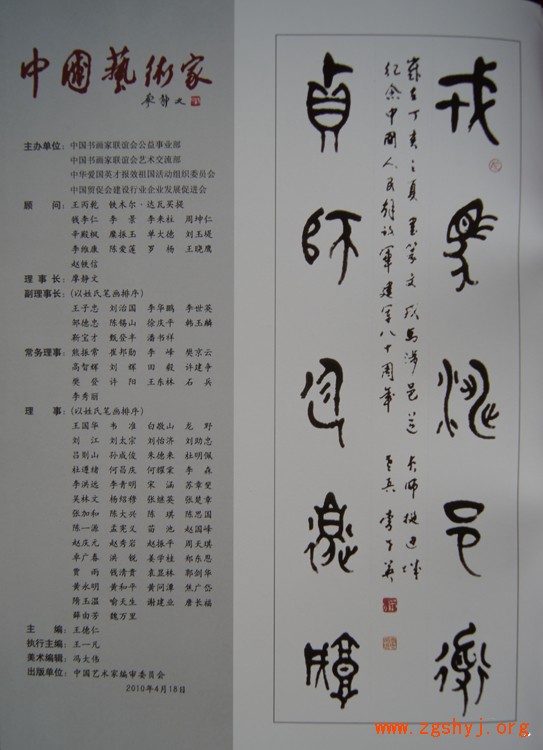 中國藝術家
廖静文
主办单位：中国书画家联谊会公益事业部
中国书画家联谊会艺术交流部
中华爱国英才报效祖国活动组织委员会
中国贸促会建设行业企业发展促进会
顾 问：王丙乾 铁木尔·达瓦买提
钱李仁 李 景 李来柱 周坤仁
辛殿枫 糜振玉 单大德 刘玉堤
李维康 陈爱莲 罗 杨 王晓鹰
赵铁信
理 事 长：廖静文
副理事长：（以姓氏笔画排序）
王子忠 刘治国 李华鹏 李世英
邹德忠 陈锡山 徐庆平 韩玉麟
靳宝才 甄登丰 潘书祥
常务理事：熊振常 崔邦勋 李 峰 樊京云
高智辉 刘 辉 田 毅 许建争
樊 登 许 阳 王东林 石 兵
李秀丽
理 事：（以姓氏笔画排序）
王国华 韦 准 白敬山 龙 野
刘 江 刘太宗 刘怡济 刘助忠
吕则山 孙成俊 朱德来 杜明佩
杜瑾绪 何吕庆 何耀棠 李 森
李洪远 李青明 宋 涵 苏章旻
吴林文 杨绍穆 张继英 张楚章
张加和 陈大兴 陈 琪 陈思国
陈一源 孟宪义 苗 池 赵国峰
赵庆元 赵秀岩 赵振平 周天琪
卓广春 洪 锐 姜学柱 郑东恩
贾 雨 钱清贵 袁昱林 郭剑华
黄永明 黄和平 黄问潭 焦广岱
隋玉温 喻天生 谢建业 詹长福
薛由芳 魏万里
主 编：王德仁
执行主编：王一凡
美术编辑：冯大伟
出版单位：中国艺术家编审委员会
2010年4月18日
纪念中国人民解放军建军八十周年
www.zgshyj.org